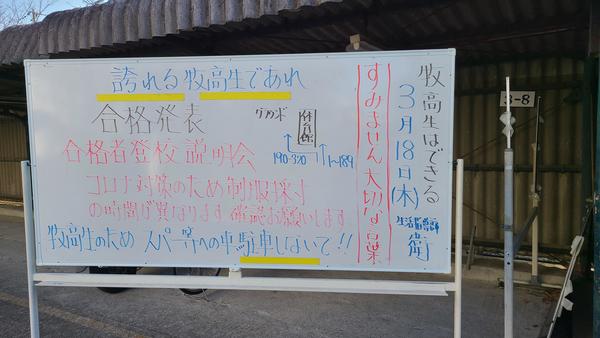 牧高生はできる
3月18日(木)
衛
すみません 大切な言葉
誇れる牧高生であれ
合格発表
グランド
体育館
190-320
1~189
合格者登校説明会
コロナ対策のため制服採寸
の時間が異なります 確認お願いします
牧高生のため スーパー等への車駐車しないで!!
3-8